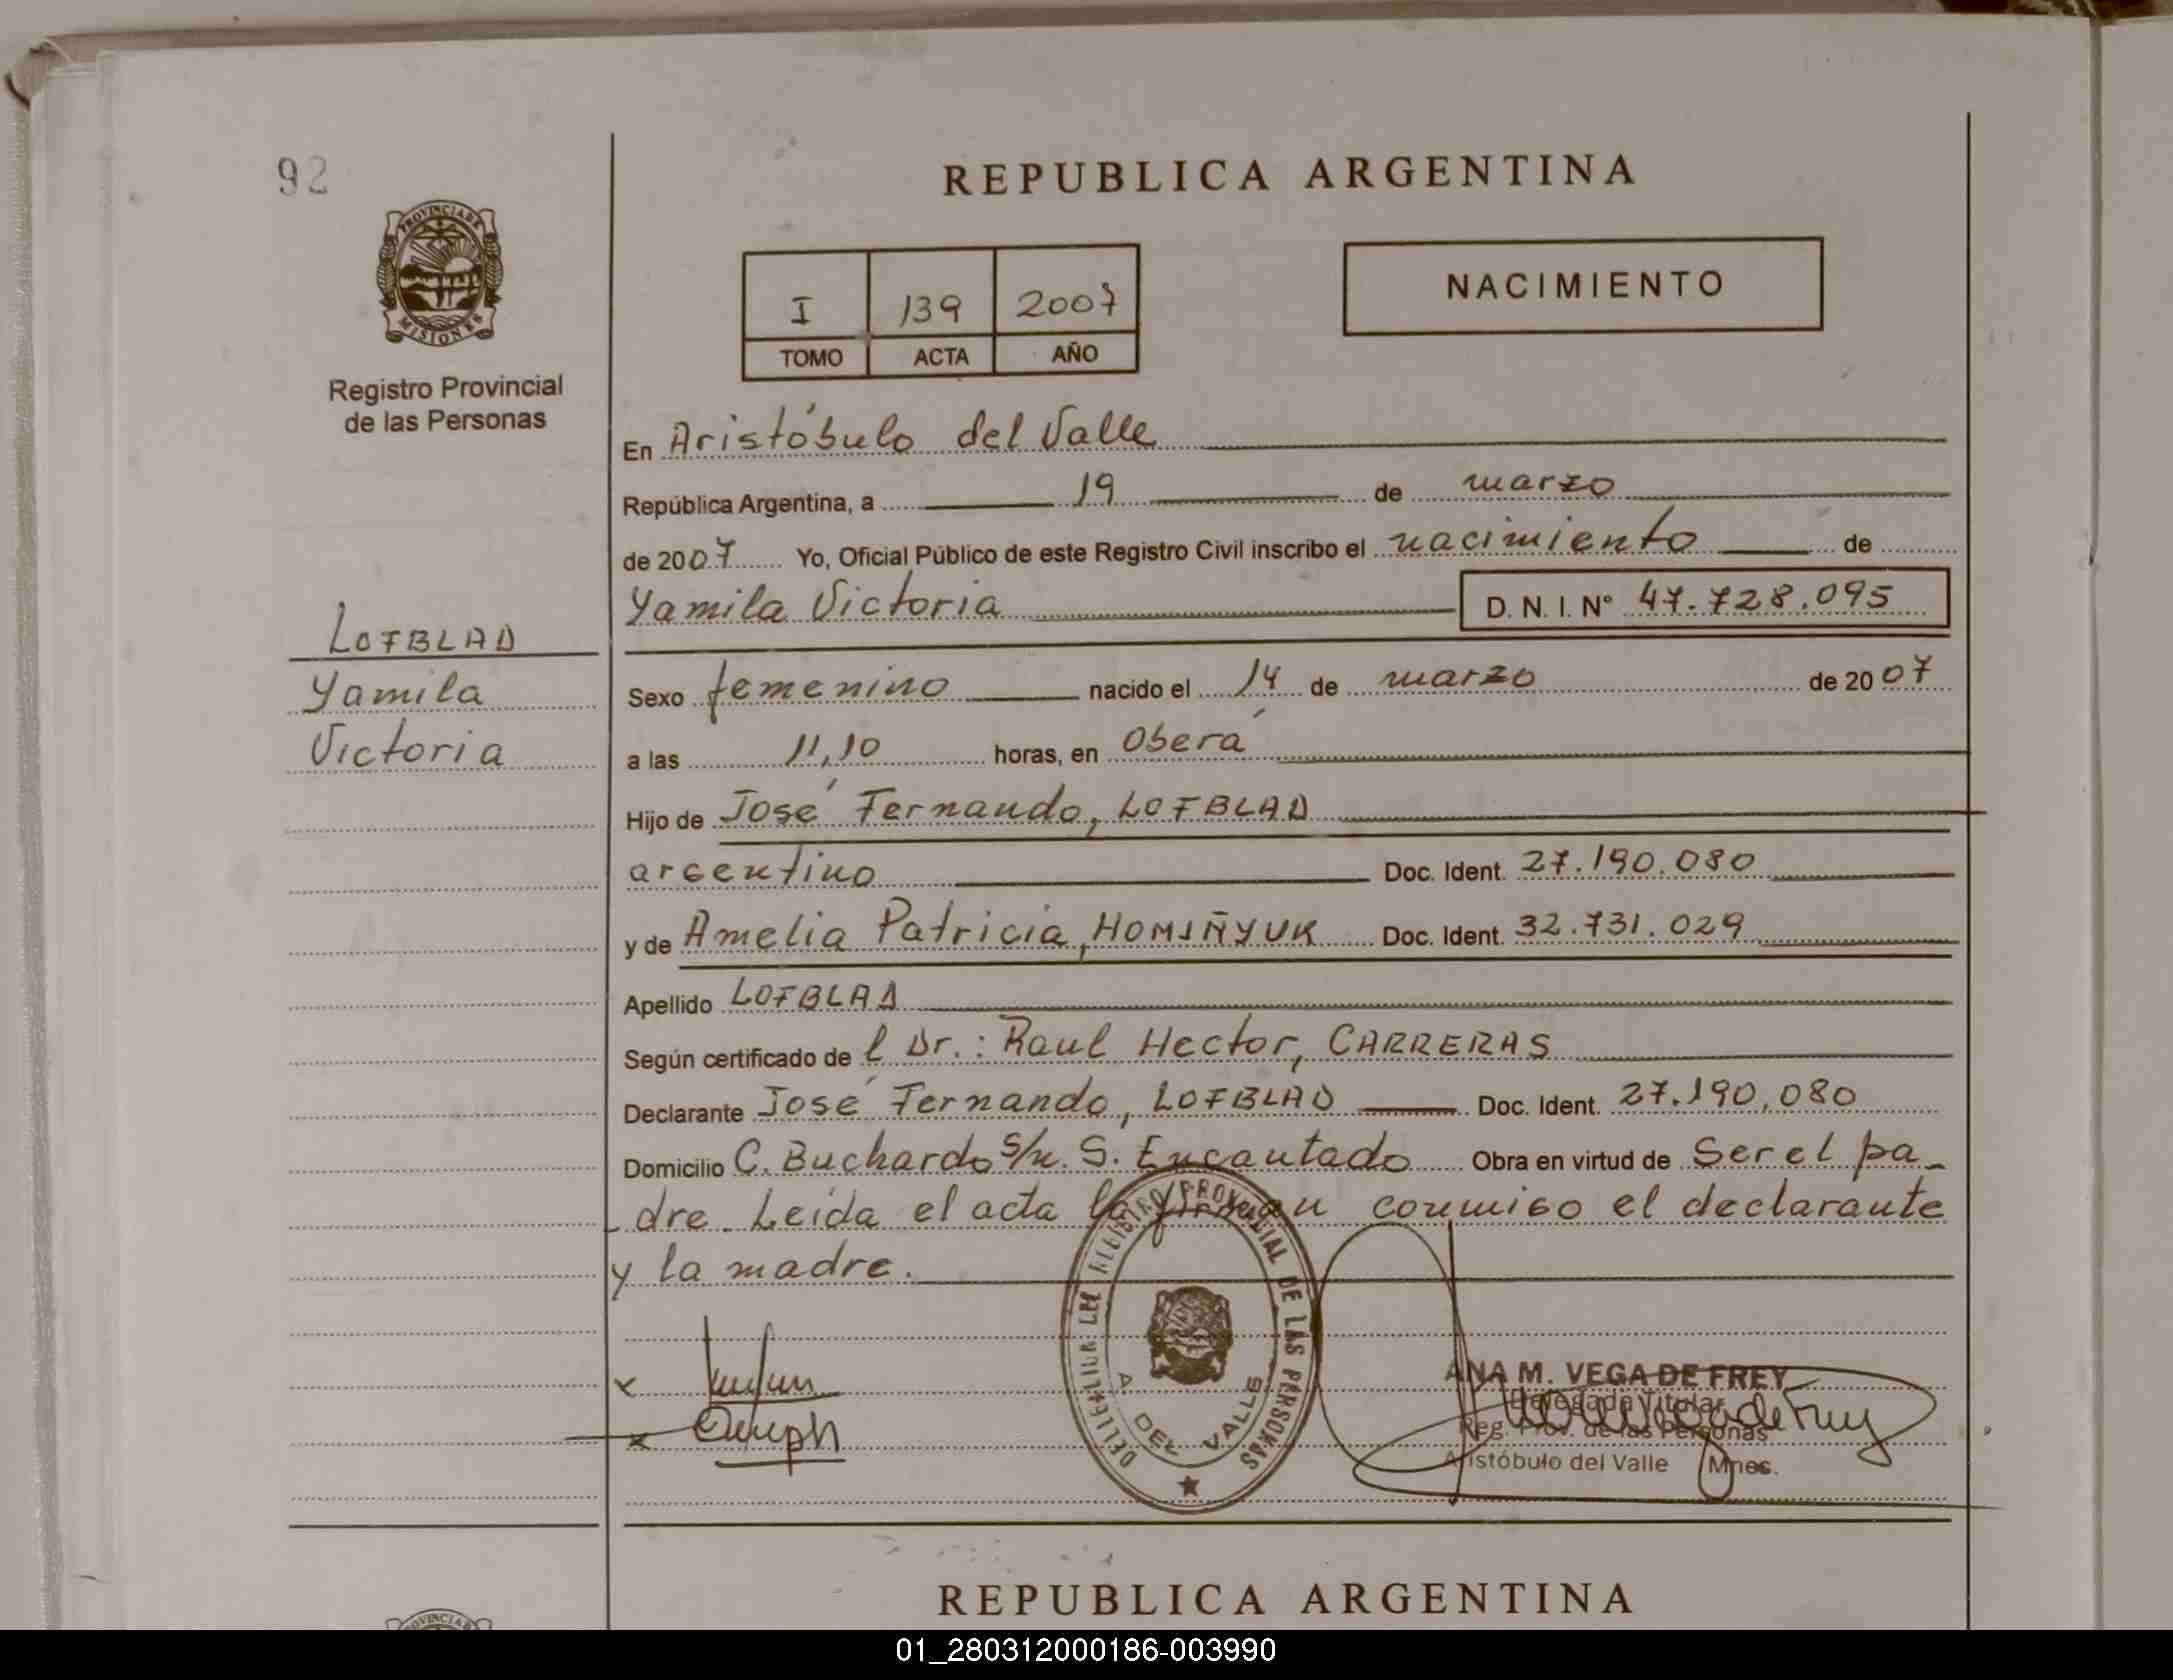 92
PROVINCIA DE
MISIONES
Registro Provincial
de las Personas
LOFBLAD
Yamila
Victoria
REPUBLICA ARGENTINA
I 139 2007
TOMO ACTA AÑO
NACIMIENTO
En Aristóbulo del Valle
República Argentina, a 19 de marzo
de 2007 Yo, Oficial Público de este Registro Civil inscribo el nacimiento de
Yamila Victoria D. N. I. N° 47.728.095
Sexo femenino nacido el 14 de marzo de 2007
a las 11,10 horas, en Oberá
Hijo de José Fernando, LOFBLAD
argentino Doc. Ident. 27.190.080
y de Amelia Patricia, HOMIÑYUK Doc. Ident. 32.731.029
Apellido LOFBLAD
Según certificado del Dr.: Raul Hector, CARRERAS
Declarante José Fernando, LOFBLAD Doc. Ident. 27.190.080
Domicilio C. Buchardo s/n. S. Encantado Obra en virtud de Ser el pa-
-dre. Leída el acta la firman conmigo el declarante
y la madre.
REGISTRO PROVINCIAL DE LAS PERSONAS
A. DEL VALLE
ANA M. VEGA DE FREY
Delegada Titular
Reg. Prov. de las Personas
Aristóbulo del Valle Mnes.
REPUBLICA ARGENTINA
PROVINCIA
01_280312000186-003990